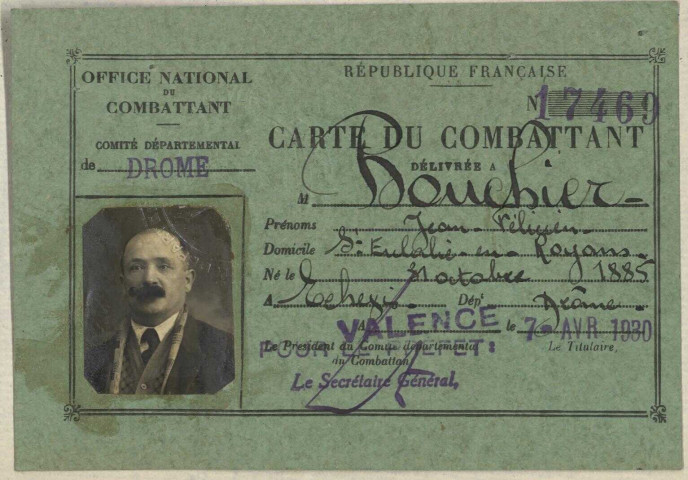 OFFICE NATIONAL
DU
COMBATTANT
COMITÉ DÉPARTEMENTAL
de DROME
RÉPUBLIQUE FRANÇAISE
N 17469
CARTE DU COMBATTANT
DÉLIVRÉE A
M Bouchier
Prénoms Jean - Féligien
Domicile St Eulalie-en-Royans
Né le 31 octobre 1885
A Echevis Dépt Drôme
A VALENCE le 7 - AVR 1930
POUR LE PREFET:
Le Président du Comité départemental
du Combattant
Le Titulaire,
Le Secrétaire Général,